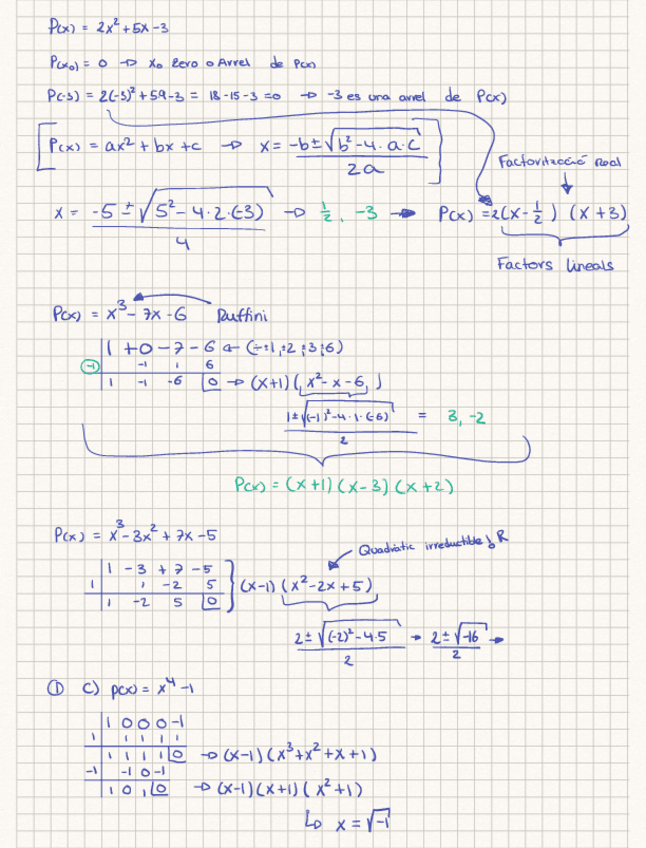 P(x) = 2x² + 5x - 3
P(x₀) = 0 → x₀ Zero o Arrel de P(x)
P(-3) = 2(-3)² + 5(-3) - 3 = 18 - 15 - 3 = 0 → -3 es una arrel de P(x)
[P(x) = ax² + bx + c → x = (-b ± √(b² - 4·a·c)) / 2a]
Factorització Real
x = (-5 ± √(5² - 4·2·(-3))) / 4 → 1/2, -3 → P(x) = 2(x - 1/2) (x + 3)
Factors lineals
P(x) = x³ - 7x - 6 Ruffini
1 + 0 - 7 - 6 ← (÷ ±1, ±2, ±3, ±6)
-1 | -1 1 6
1 -1 -6 |0 → (x+1) (x² - x - 6)
(1 ± √((-1)² - 4·1·(-6))) / 2 = 3, -2
P(x) = (x+1) (x-3) (x+2)
P(x) = x³ - 3x² + 7x - 5
Quadràtic irreductible R
1 - 3 + 7 - 5
1 | 1 -2 5 } (x-1) (x² - 2x + 5)
1 -2 5 |0
(2 ± √((-2)² - 4·5)) / 2 → (2 ± √-16) / 2 →
① C) p(x) = x⁴ - 1
1 0 0 0 -1
1 | 1 1 1 1
1 1 1 1 |0 → (x-1) (x³ + x² + x + 1)
-1 | -1 0 -1
1 0 1 |0 → (x-1) (x+1) (x² + 1)
↳ x = √-1